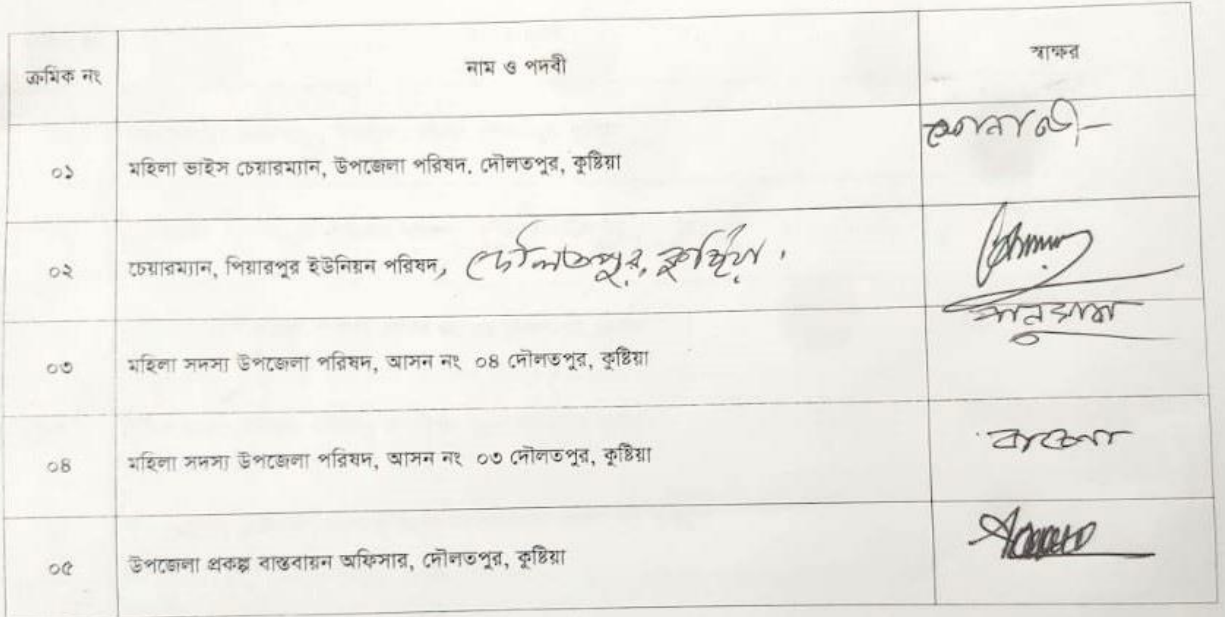 ক্রমিক নং নাম ও পদবী স্বাক্ষর
০১ মহিলা ভাইস চেয়ারম্যান, উপজেলা পরিষদ, দৌলতপুর, কুষ্টিয়া
০২ চেয়ারম্যান, পিয়ারপুর ইউনিয়ন পরিষদ, দৌলতপুর, কুষ্টিয়া।
০৩ মহিলা সদস্য উপজেলা পরিষদ, আসন নং ০৪ দৌলতপুর, কুষ্টিয়া
০৪ মহিলা সদস্য উপজেলা পরিষদ, আসন নং ০৩ দৌলতপুর, কুষ্টিয়া
০৫ উপজেলা প্রকল্প বাস্তবায়ন অফিসার, দৌলতপুর, কুষ্টিয়া